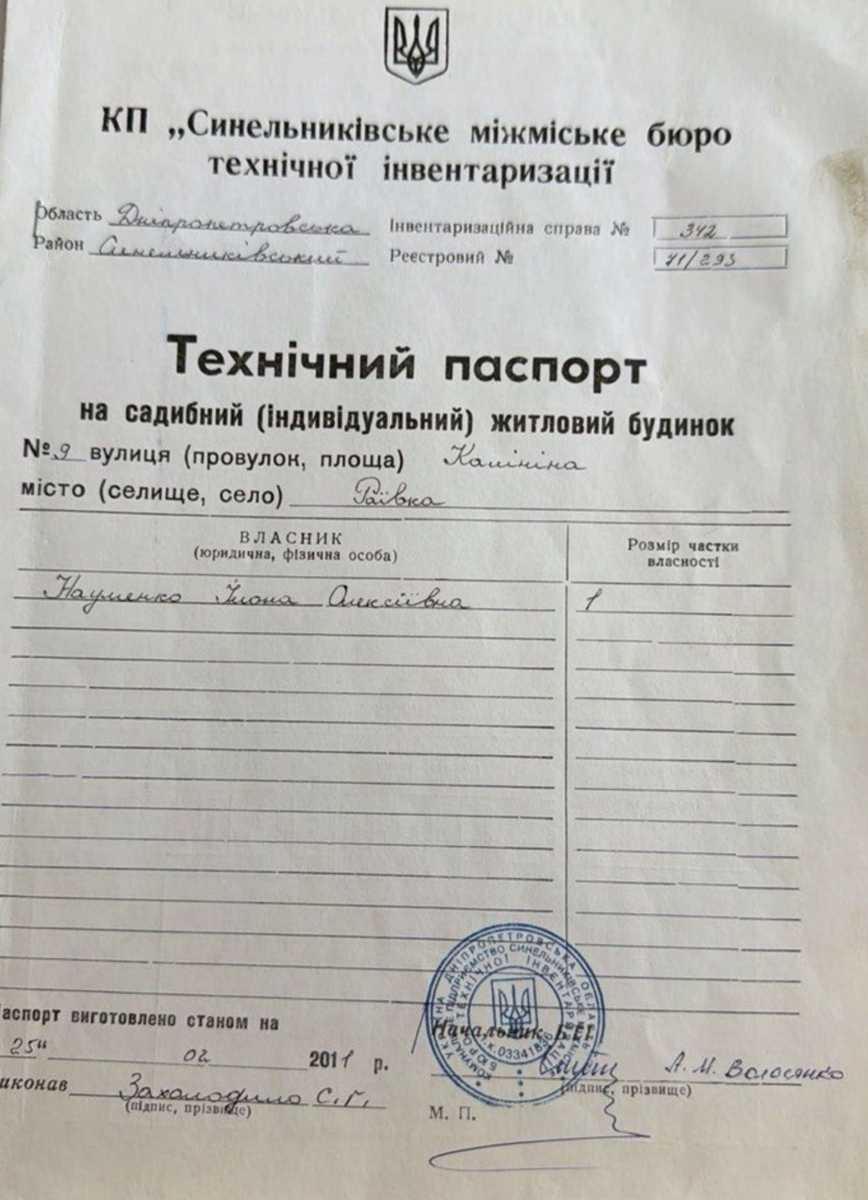 КП „Синельниківське міжміське бюро
технічної інвентаризації
Область Дніпропетровська Інвентаризаційна справа № 342
Район Синельниківський Реєстровий № 41/293
Технічний паспорт
на садибний (індивідуальний) житловий будинок
№ 9 вулиця (провулок, площа) Калініна
місто (селище, село) Раївка
ВЛАСНИК
(юридична, фізична особа)
Розмір частки
власності
Науменко Ілона Олексіївна 1
Паспорт виготовлено станом на
25" 02 2011 р.
Начальник БТІ
А. М. Волосянко
(підпис, прізвище)
виконав Захолодило С.Г.
(підпис, прізвище)
М. П.
УКРАЇНА ДНІПРОПЕТРОВСЬКА ОБЛАСТЬ
КОМУНАЛЬНЕ ПІДПРИЄМСТВО СИНЕЛЬНИКІВСЬКЕ
БЮРО ТЕХНІЧНОЇ ІНВЕНТАРИЗАЦІЇ
і.к.03341836